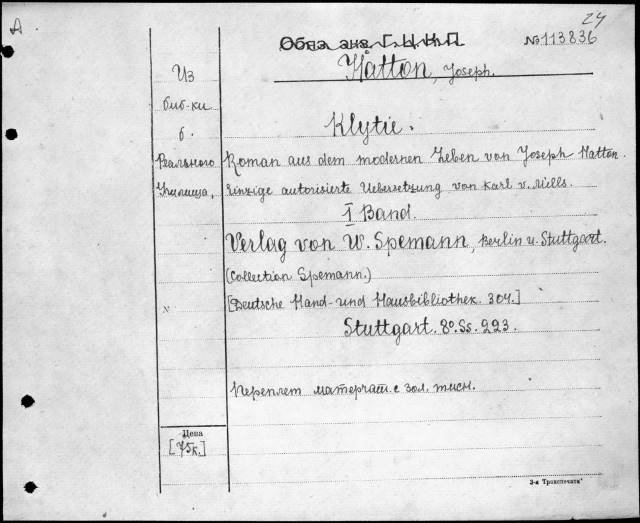 А
24
Обяз. экз. Г.Ц.К.П.
№113836
Hatton, Joseph.
Из
биб-ки
б.
Реального
Училища,
Klytie.
Roman aus dem modernen Leben von Joseph Hatton.
Einzige autorisierte Uebersetzung von Karl v. Mills.
I Band.
Verlag von W. Spemann, Berlin u. Stuttgart.
(Collection Spemann.)
[Deutsche Hand- und Hausbibliothek. 304.]
Stuttgart. 8o. Ss. 223.
Переплет матерчат. с зол. тисн.
Цена
[75к.]
3-я Транспечати